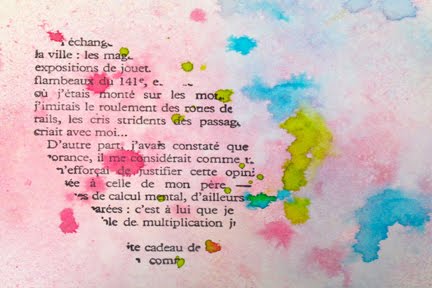 échang
la ville : les mag
expositions de jouet
flambeaux du 141e, e
où j'étais monté sur les mo
j'imitais le roulement des roues de
rails, les cris stridents des passag
criait avec moi...
D'autre part, j'avais constaté que
orance, il me considérait comme
n'efforçai de justifier cette opini
ée à celle de mon père
es de calcul mental, d'ailleurs
arées : c'est à lui que je
ble de multiplication j
te cadeau de
comm